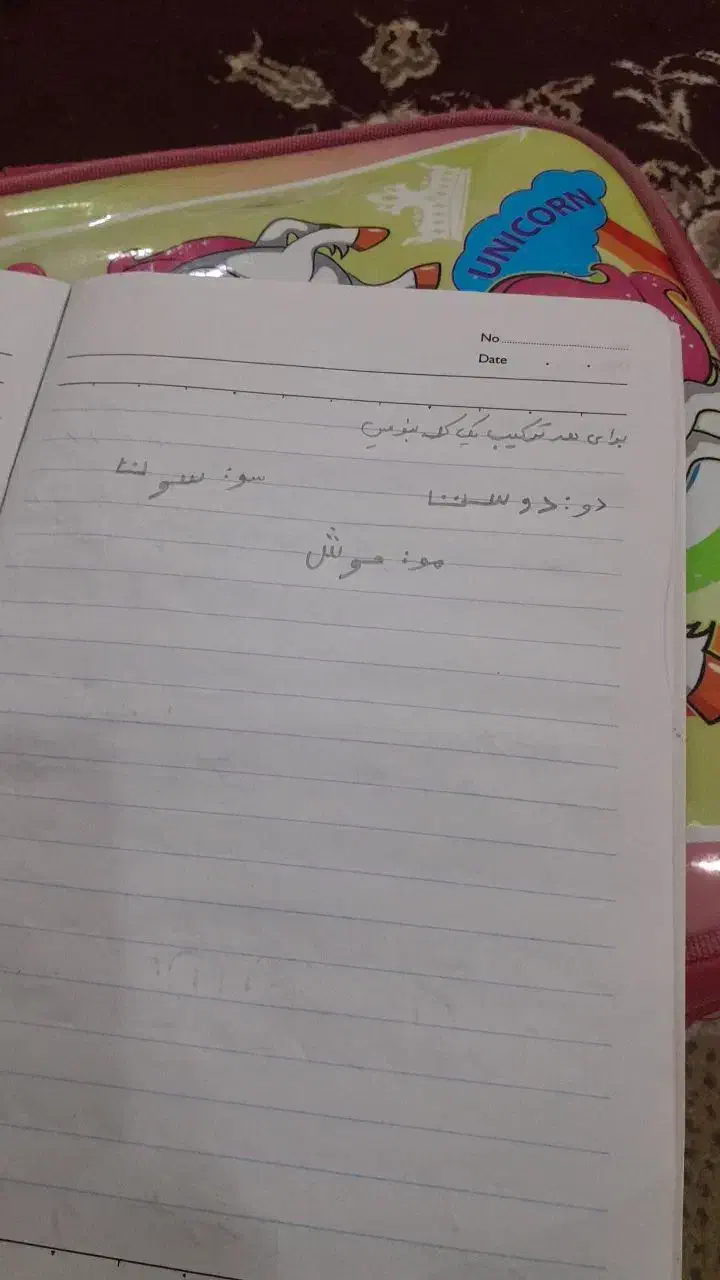 UNICORN
No
Date
برای هر ترکیب یک کلمه بنویس
دو: دوست سو: سوت
مو: موش